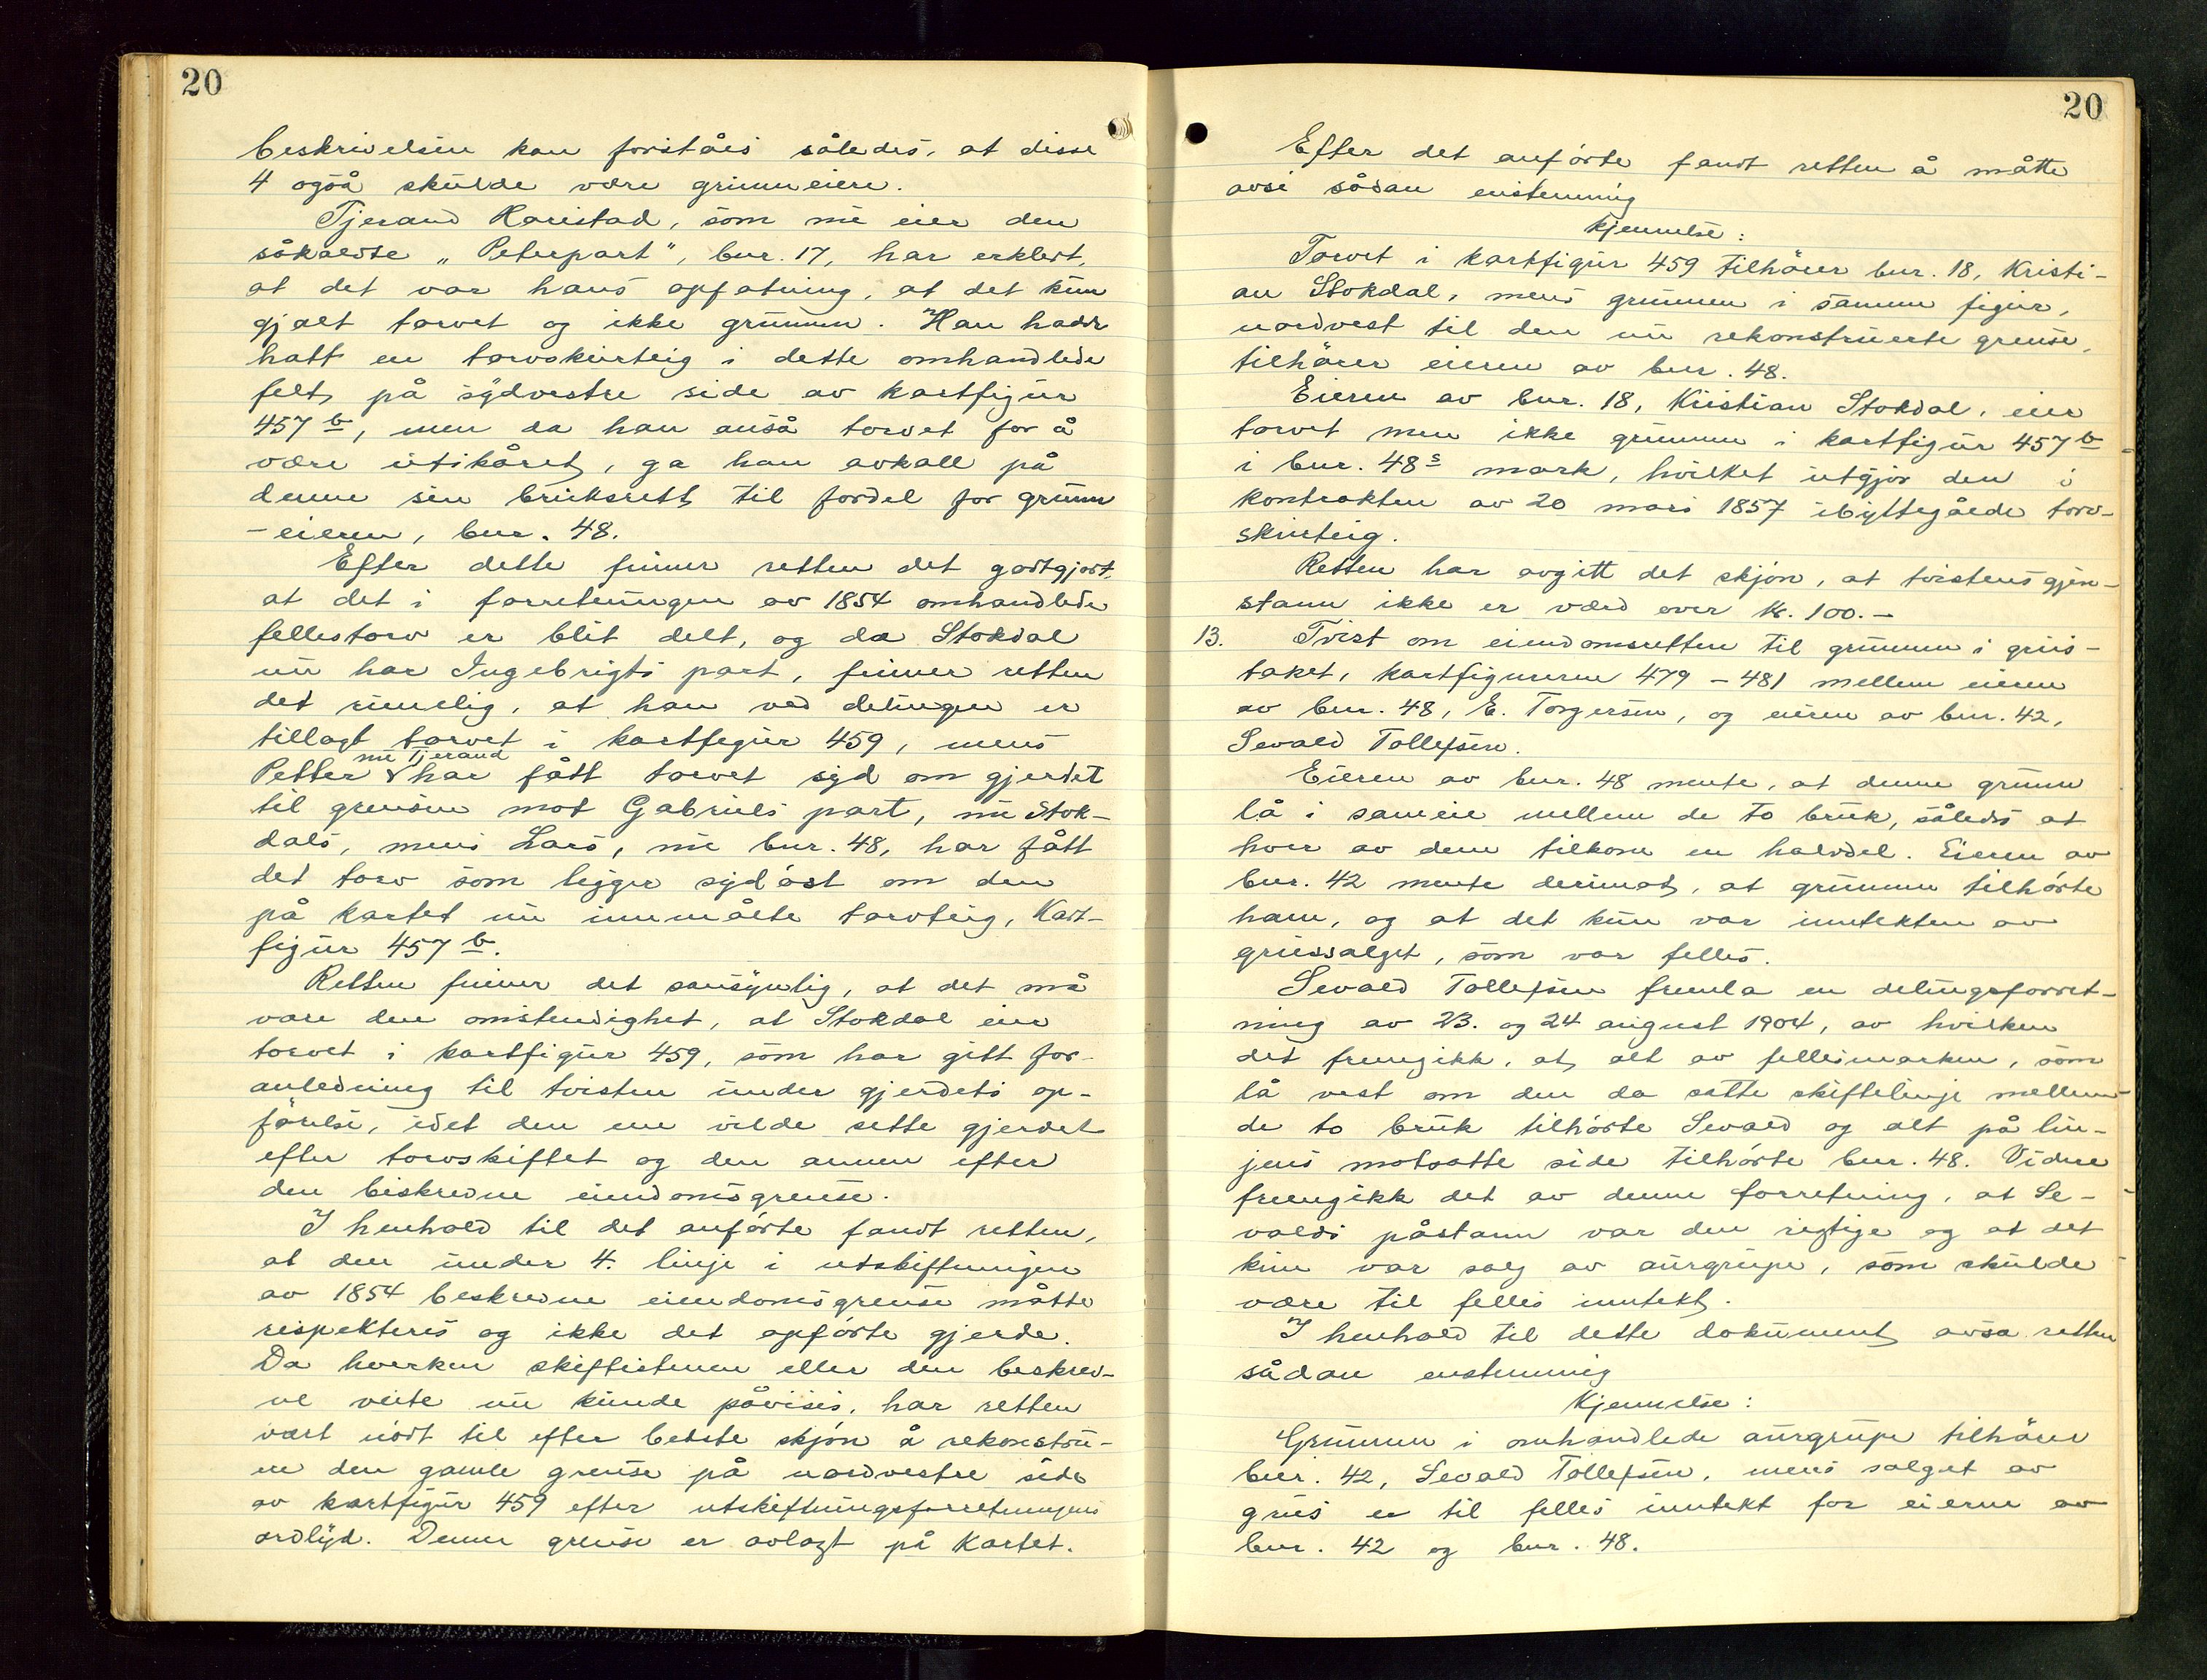 20
beskrivelsen kan forståes således, at disse
4 også skulde være grunneiere.
Tjerand Haristad, som nu eier den
såkaldte „Peterpart", bnr. 17, har erklert,
at det var hans opfatning, at det kun
gjalt torvet og ikke grunnen. Han hadde
hatt en torvskurteig i dette omhandlede
felt, på sydvestre side av kartfigur
457 b, men da han anså torvet for å
være utskåret, ga han avkall på
denne sin bruksrett til fordel for grunn
-eieren, bnr. 48.
Efter dette finner retten det godtgjort,
at det i forretningen av 1854 omhandlede
fellestorv er blit delt, og da Stokdal
nu har Ingebrigts part, finner retten
det rimelig, at han ved delingen er
tillagt torvet i kartfigur 459, mens
nu Tjerand
Petter har fått torvet syd om gjerdet
til grensen mot Gabriels part, nu Stok-
dals, mens Lars, nu bnr. 48, har fått
det torv som ligger sydöst om den
på kartet nu innmålte torvteig, Kart-
figur 457 b.
Retten finner det sansynlig, at det må
være den omstendighet, at Stokdal eier
torvet i kartfigur 459, som har gitt for-
anledning til tvisten under gjerdets op-
förelse, idet den ene vilde sette gjerdet
efter torvskiftet og den annen efter
den beskrevne eiendomsgrense.
I henhold til det anförte fandt retten,
at den under 4. linje i utskiftningen
av 1854 beskrevne eiendomsgrense måtte
respekteres og ikke det opförte gjerde.
Da hverken skiftestenene eller den beskrev-
ne veite nu kunde påvises, har retten
vært nödt til efter beste skjön å rekonstru-
ere den gamle grense på nordvestre side
av kartfigur 459 efter utskiftningsforretningens
ordlyd. Denne grense er avlagt på Kartet.
20
Efter det anförte fandt retten å måtte
avsi sådan enstemmig
Kjennelse:
Torvet i kartfigur 459 tilhörer bnr. 18, Kristi-
an Stokdal, mens grunnen i samme figur,
nordvest til den nu rekonstruerte grense,
tilhörer eieren av bnr. 48.
Eieren av bnr. 18, Kristian Stokdal, eier
torvet men ikke grunnen i kartfigur 457 b
i bnr. 48s mark, hvilket utgjör den i
kontrakten av 20 mars 1857 ibyttegåede torv-
skurteig.
Retten har avgitt det skjön, at tvistens gjen-
stann ikke er værd over kr. 100.-
13. Tvist om eiendomsretten til grunnen i grus-
taket, kartfigurene 479 - 481 mellem eieren
av bnr. 48, E. Torgersen, og eieren av bnr. 42,
Sevald Tollefsen.
Eieren av bnr. 48 mente, at denne grunn
lå i sameie mellem de to bruk, således at
hver av dem tilkom en halvdel. Eieren av
bnr. 42 mente derimot, at grunnen tilhörte
ham, og at det kun var inntekten av
grussalget, som var felles.
Sevald Tollefsen fremla en delingsforret-
ning av 23. og 24 august 1904, av hvilken
det fremgikk, at alt av fellesmarken, som
lå vest om den da satte skiftelinje mellem
de to bruk tilhörte Sevald og alt på lin-
jens motsatte side tilhörte bnr. 48. Videre
fremgikk det av denne forretning, at Se-
valds påstann var den rigtige og at det
kun var salg av aurgrupe, som skulde
være til felles inntekt.
I henhold til dette dokument avsa retten
sådan enstemmig
Kjennelse:
Grunnen i omhandlede aurgrupe tilhörer
bnr. 42, Sevald Tollefsen, mens salget av
grus er til felles inntekt for eierne av
bnr. 42 og bnr. 48.